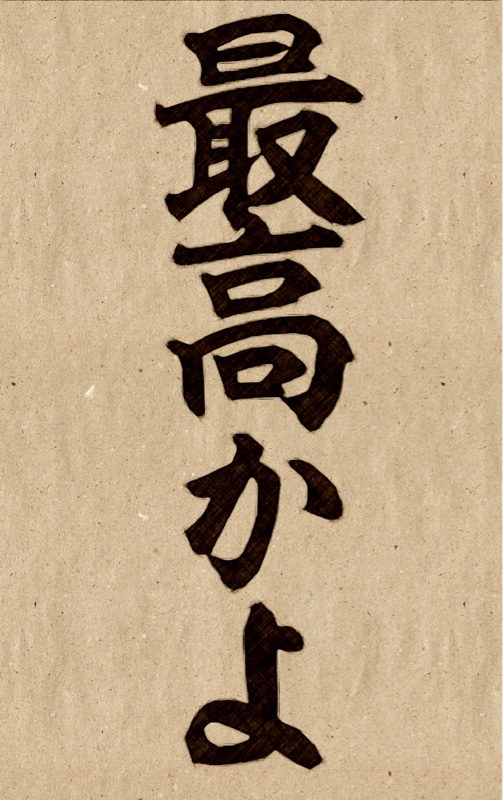 最高かよ